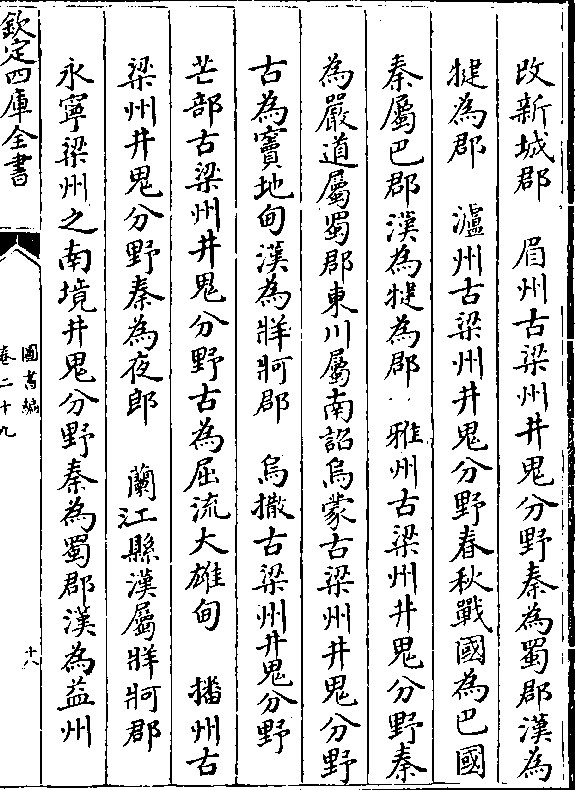 改新城郡　眉州古梁州井鬼分野秦為蜀郡漢為
犍為郡　瀘州古梁州井鬼分野春秋戰國為巴國
秦屬巴郡漢為犍為郡　雅州古梁州井鬼分野秦
為嚴道屬蜀郡東川屬南詔烏蒙古梁州井鬼分野
古為竇地甸漢為牂牁郡　烏撒古梁州井鬼分野
芒部古梁州井鬼分野古為屈流大雄甸　播州古
梁州井鬼分野秦為夜郎　蘭江縣漢屬牂牁郡
永寧梁州之南境井鬼分野秦為蜀郡漢為益州
欽定四庫全書
圖書編
卷二十九
十八